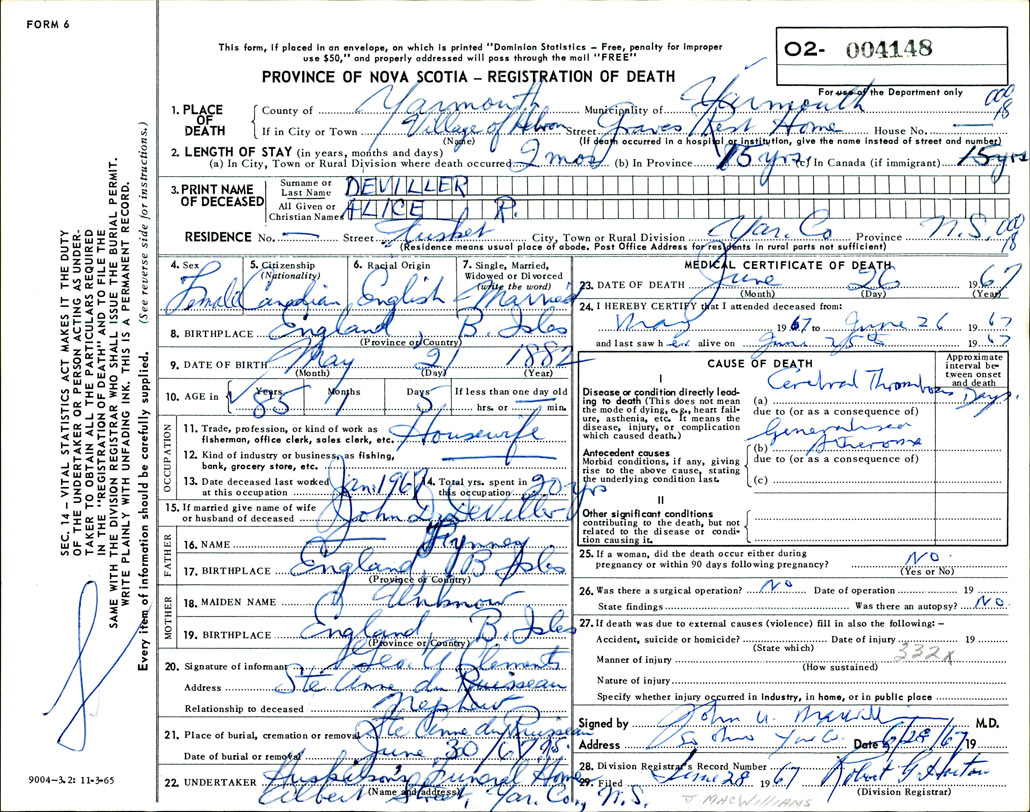 FORM 6
This form, if placed in an envelope, on which is printed "Dominion Statistics – Free, penalty for improper
use $50," and properly addressed will pass through the mail "FREE"
O2- 004148
For use of the Department only
PROVINCE OF NOVA SCOTIA – REGISTRATION OF DEATH
1. PLACE OF DEATH County of Yarmouth Municipality of Yarmouth
If in City or Town Village of Street Graves Rest Home House No. —
(Name) (If death occurred in a hospital or institution, give the name instead of street and number)
2. LENGTH OF STAY (in years, months and days)
(a) In City, Town or Rural Division where death occurred 2 mos (b) In Province 15 yrs (c) In Canada (if immigrant) 15 yrs
3. PRINT NAME OF DECEASED
Surname or Last Name DEVILLER
All Given or Christian Names ALICE R.
RESIDENCE No. — Street Tusket City, Town or Rural Division Yar. Co Province N.S.
(Residence means usual place of abode. Post Office Address for residents in rural parts not sufficient)
4. Sex Female
5. Citizenship (Nationality) Canadian
6. Racial Origin English
7. Single, Married, Widowed or Divorced (write the word) Married
8. BIRTHPLACE England, B. Isles
(Province or Country)
9. DATE OF BIRTH May 21 1882
(Month) (Day) (Year)
10. AGE in Years 85 Months 1 Days 5 If less than one day hrs. or min.
OCCUPATION
11. Trade, profession, or kind of work as fisherman, office clerk, sales clerk, etc. Housewife
12. Kind of industry or business, as fishing, bank, grocery store, etc.
13. Date deceased last worked at this occupation Jan. 1967
14. Total yrs. spent in this occupation 20 yrs
15. If married give name of wife or husband of deceased John D. DeViller
FATHER
16. NAME
17. BIRTHPLACE England, B Isles
(Province or Country)
MOTHER
18. MAIDEN NAME Unknown
19. BIRTHPLACE England, B. Isles
(Province or Country)
20. Signature of informant Geo. A Clements
Address Ste Anne du Ruisseau
Relationship to deceased Nephew
21. Place of burial, cremation or removal Ste Anne du Ruisseau
Date of burial or removal June 30/67 N.S.
22. UNDERTAKER Huskilson's Funeral Home
(Name and address)
Albert Street, Yar. Co., N.S.
MEDICAL CERTIFICATE OF DEATH
23. DATE OF DEATH June 26 1967
(Month) (Day) (Year)
24. I HEREBY CERTIFY that I attended deceased from:
May 1967 to June 26 1967
and last saw her alive on June 25th 1967
CAUSE OF DEATH
Approximate interval between onset and death
I
Disease or condition directly leading to death (This does not mean the mode of dying, e.g., heart failure, asthenia, etc. It means the disease, injury, or complication which caused death.)
(a) Cerebral Thrombosis Days.
due to (or as a consequence of)
Antecedent causes
Morbid conditions, if any, giving rise to the above cause, stating the underlying condition last.
(b) Generalised Atheroma
due to (or as a consequence of)
(c)
II
Other significant conditions
contributing to the death, but not related to the disease or condition causing it.
25. If a woman, did the death occur either during pregnancy or within 90 days following pregnancy? No.
(Yes or No)
26. Was there a surgical operation? No Date of operation 19
State findings Was there an autopsy? No.
27. If death was due to external causes (violence) fill in also the following: –
Accident, suicide or homicide? Date of injury 19
(State which)
332X
Manner of injury
(How sustained)
Nature of injury
Specify whether injury occurred in industry, in home, or in public place
Signed by John M.D.
Address Yar Co. Date 6/28/67 19
28. Division Registrar's Record Number
29. Filed June 28 1967 Robert G. Horton
(Division Registrar)
J MACWILLIAMS
SEC. 14 – VITAL STATISTICS ACT MAKES IT THE DUTY
OF THE UNDERTAKER OR PERSON ACTING AS UNDER-
TAKER TO OBTAIN ALL THE PARTICULARS REQUIRED
IN THE "REGISTRATION OF DEATH" AND TO FILE THE
SAME WITH THE DIVISION REGISTRAR WHO SHALL ISSUE THE BURIAL PERMIT.
WRITE PLAINLY WITH UNFADING INK. THIS IS A PERMANENT RECORD.
Every item of information should be carefully supplied. (See reverse side for instructions.)
9004–3.2: 11-3-65